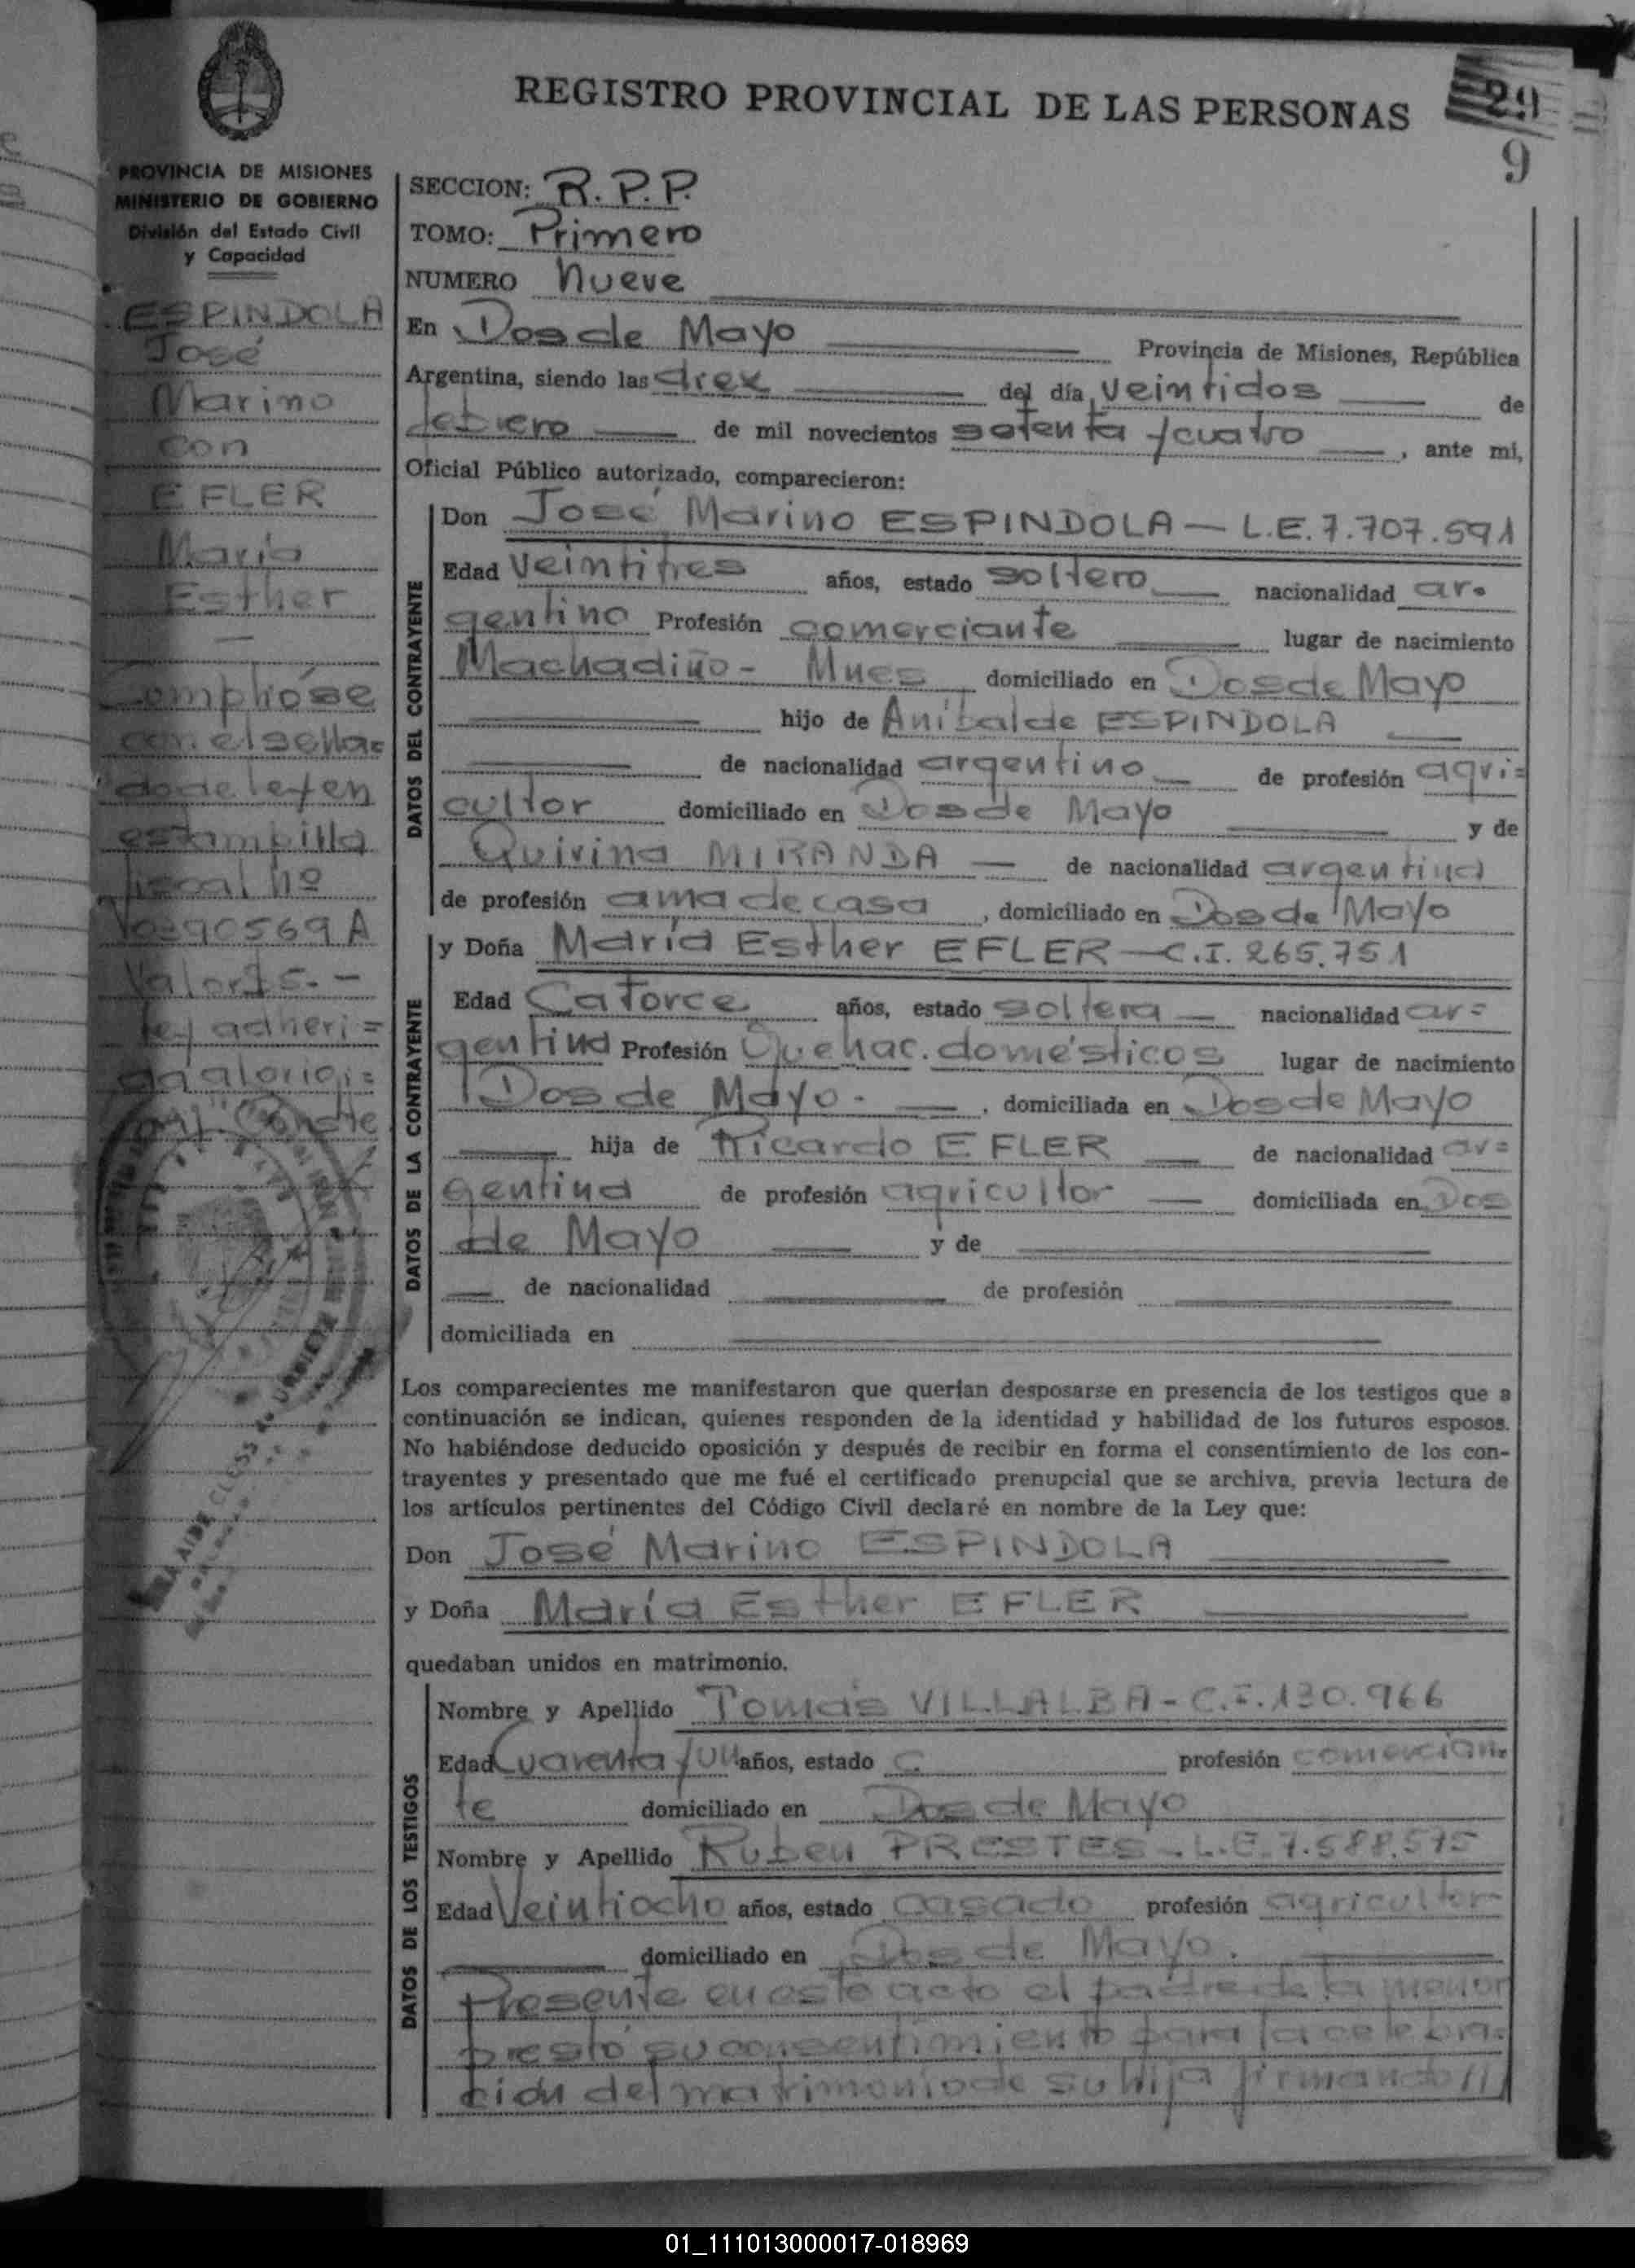 REGISTRO PROVINCIAL DE LAS PERSONAS
29
9
PROVINCIA DE MISIONES
MINISTERIO DE GOBIERNO
División del Estado Civil
y Capacidad
ESPINDOLA
José
Marino
con
EFLER
María
Esther
Complióse
con el sella=
do de ley en
estampilla
fiscal nº
90569A
Valor $ 5.-
ley adheri=
da al origi=
Conste
SECCION: R.P.P.
TOMO: Primero
NUMERO nueve
En Dos de Mayo Provincia de Misiones, República
Argentina, siendo las diez del día veintidos de
febrero de mil novecientos setenta y cuatro, ante mi,
Oficial Público autorizado, comparecieron:
DATOS DEL CONTRAYENTE
Don José Marino ESPINDOLA - L.E. 7.707.591
Edad veintitres años, estado soltero nacionalidad ar=
gentino Profesión comerciante lugar de nacimiento
Machadiño - Mnes domiciliado en Dos de Mayo
hijo de Anibal de ESPINDOLA
de nacionalidad argentino de profesión agri=
cultor domiciliado en Dos de Mayo y de
Quirina MIRANDA de nacionalidad argentina
de profesión ama de casa, domiciliado en Dos de Mayo
DATOS DE LA CONTRAYENTE
y Doña María Esther EFLER - C.I. 265.751
Edad Catorce años, estado soltera nacionalidad ar=
gentina Profesión Quehac. domésticos lugar de nacimiento
Dos de Mayo.-, domiciliada en Dos de Mayo
hija de Ricardo EFLER de nacionalidad ar=
gentina de profesión agricultor domiciliada en Dos
de Mayo y de
de nacionalidad de profesión
domiciliada en
Los comparecientes me manifestaron que querían desposarse en presencia de los testigos que a
continuación se indican, quienes responden de la identidad y habilidad de los futuros esposos.
No habiéndose deducido oposición y después de recibir en forma el consentimiento de los con-
trayentes y presentado que me fué el certificado prenupcial que se archiva, previa lectura de
los artículos pertinentes del Código Civil declaré en nombre de la Ley que:
Don José Marino ESPINDOLA
y Doña María Esther EFLER
quedaban unidos en matrimonio.
DATOS DE LOS TESTIGOS
Nombre y Apellido Tomás VILLALBA - C.I. 130.966
Edad Cuarenta y un años, estado C. profesión comercian=
te domiciliado en Dos de Mayo
Nombre y Apellido Ruben PRESTES - L.E. 7.588.575
Edad Veintiocho años, estado casado profesión agricultor
domiciliado en Dos de Mayo.
Presente en este acto el padre de la menor
prestó su consentimiento para la celebra=
ción del matrimonio de su hija firmando ///
01_111013000017-018969